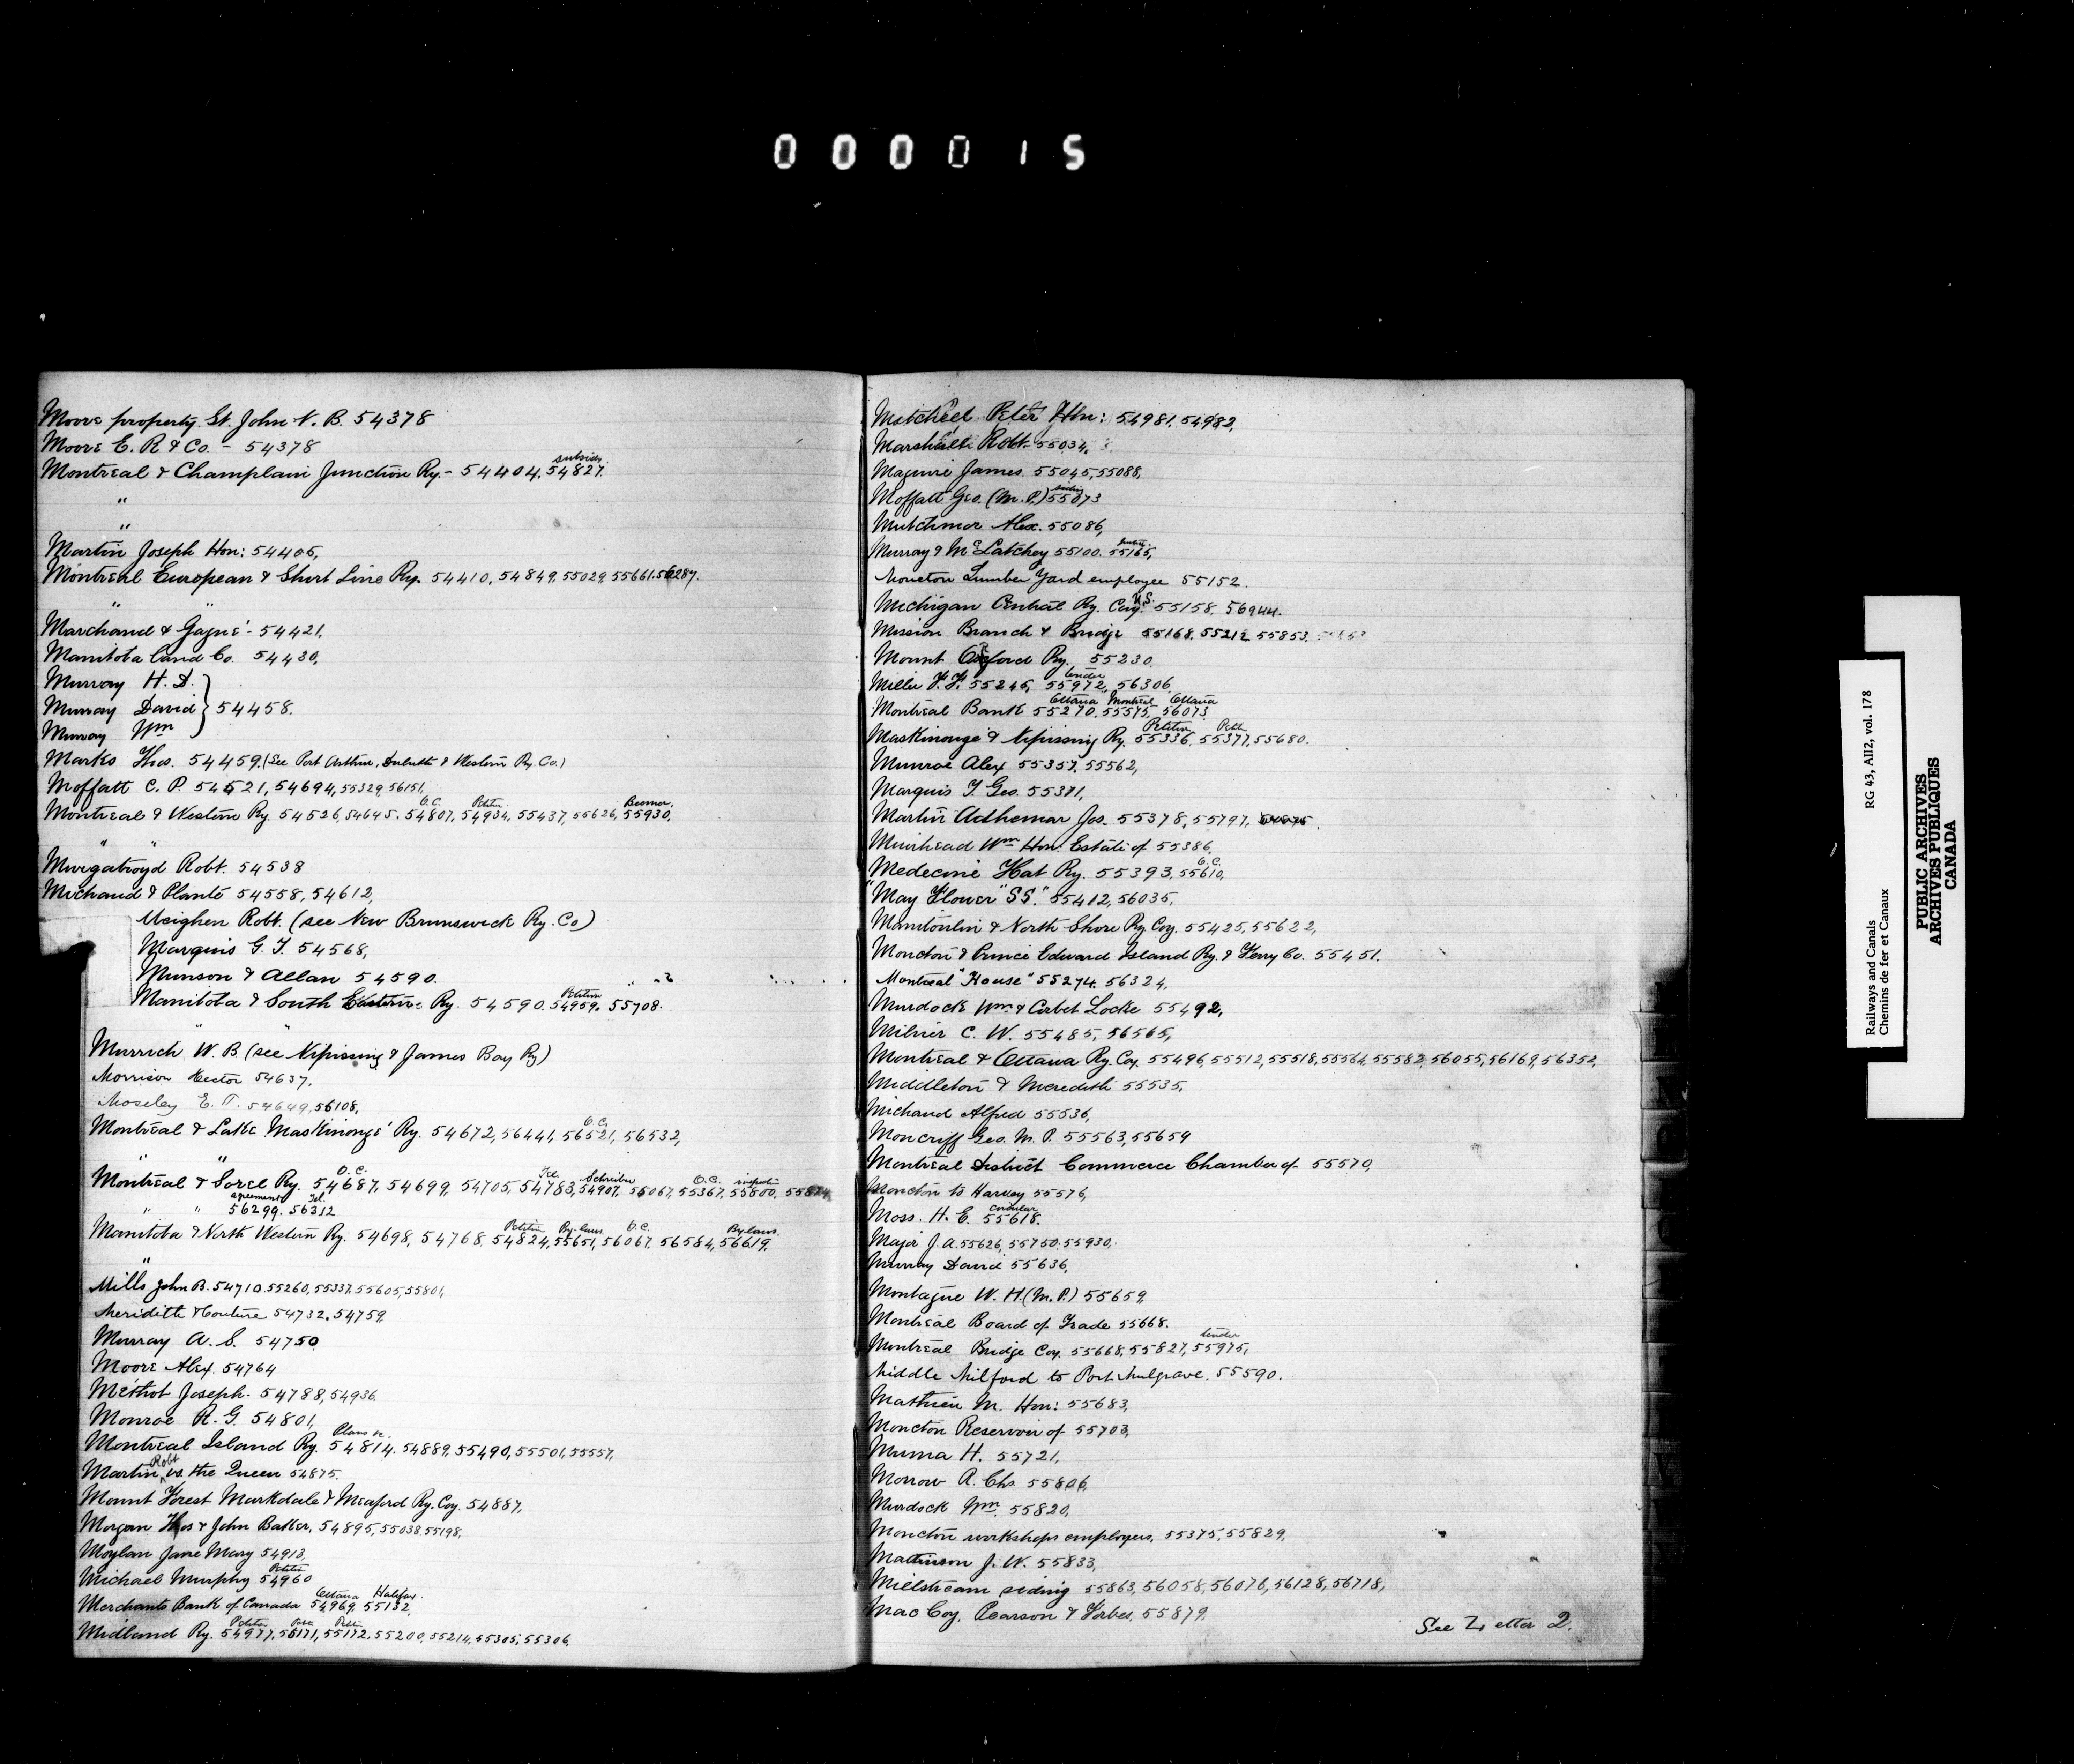 000015
Moore property St. John N. B. 54378
Moore E. R & Co. - 54378
subsidy
Montreal & Champlain Junction Ry. - 54404, 54827.
"
"
Martin Joseph Hon: 54405,
Montreal European & Short Line Ry. 54410, 54849, 55029, 55661, 56287.
" "
Marchand & Gagné - 54421,
Manitoba Land Co. 54430,
Murray H. D.
Murray David } 54458.
Murray Wm
Marks Thos. 54459, (See Port Arthur, Duluth & Western Ry. Co.)
Moffatt C. P. 54521, 54694, 55329, 56151,
O.C. Petition Beemer,
Montreal & Western Ry. 54526, 54645, 54807, 54934, 55437, 55626, 55930,
" "
Murgatroyd Robt. 54538
Michaud & Planté 54558, 54612,
Meighen Robt. (see New Brunswick Ry. Co)
Marquis G. T. 54568,
Munson & Allan 54590.
Petition
Manitoba & South Eastern Ry. 54590, 54959, 55708.
" "
Murrich W. B. (see Nipissing & James Bay Ry)
Morrison Hector 54637.
Moseley E. T. 54649, 56108,
O.C.
Montreal & Lake Maskinongé Ry. 54672, 56441, 56521, 56532,
" "
O.C. Tel. Schreiber O.C. inspection
Montreal & Sorel Ry. 54687, 54699, 54705, 54783, 54907, 55067, 55367, 55800,
agreement Tel.
" " 56299. 56312
Petition By-laws O.C. By-laws
Manitoba & North Western Ry. 54698, 54768, 54824, 55651, 56067, 56584, 56619,
"
Mills John B. 54710, 55260, 55337, 55605, 55801,
Meridith & Couture 54732, 54759,
Murray A. S. 54750
Moore Alex. 54764
Méthot Joseph. 54788, 54936
Monroe R. G. 54801,
Plans
Montreal Island Ry. 54814, 54889, 55490, 55501, 55557,
Robt
Martin vs the Queen 54875.
Mount Forest Markdale & Meaford Ry. Coy. 54887,
Morgan Thos & John Batter, 54895, 55038, 55198,
Moylan Jane Mary 54913,
Petition
Michael Murphy 54960
Ottawa Halifax
Merchants Bank of Canada 54969, 55132,
Petition Petn Petn
Midland Ry. 54977, 55171, 55172, 55200, 55214, 55305, 55306,
Mitchell Peter Hon: 54981, 54982,
Marshall Robt. 55034,
Maguire James. 55045, 55088,
Moffatt Geo. (M.P.) 55073
Mutchmor Alex. 55086,
Murray & McLatchey 55100, 55165,
Moncton Lumber Yard employee 55152.
U.S.
Michigan Central Ry. Coy. 55158, 56944.
Mission Branch & Bridge 55168, 55212, 55853,
Mount Orford Ry. 55230
tender
Miller F. F. 55245, 55972, 56306
Ottawa Montreal Ottawa
Montreal Bank 55270, 55575, 56073
Petition Petn
Maskinonge & Nipissing Ry. 55336, 55377, 55680.
Munroe Alex 55357, 55562,
Marquis T. Geo. 55381,
Martin Adhemar Jos. 55378, 55797,
Muirhead Wm Hon. Estate of 55386,
O.C.
Medecine Hat Ry. 55393, 55610,
"May Flower" SS." 55412, 56035,
Manitoulin & North Shore Ry. Coy. 55425, 55622,
Moncton & Prince Edward Island Ry. & Ferry Co. 55451.
Montreal "House" 55274, 56324,
Murdock Wm & Corbet Locke 55492,
Milner C. W. 55485, 56565,
Montreal & Ottawa Ry. Coy. 55496, 55512, 55518, 55564, 55582, 56055, 56169, 56352,
Middleton & Meredith 55535,
Michaud Alfred 55536,
Moncriff Geo. M. P. 55563, 55659
Montreal District Commerce Chamber of 55570,
Moncton to Harvey 55576,
circular
Moss. H. E. 55618.
Major J. A. 55626, 55750, 55930,
Murray David 55636,
Montague W. H. (M.P.) 55659
Montreal Board of Trade 55668.
tender
Montreal Bridge Coy. 55668, 55827, 55975,
Middle Milford to Port Mulgrave. 55590.
Mathieu M. Hon: 55683,
Moncton Reservoir of 55703,
Muma H. 55721,
Morrow R. Chs. 55806,
Murdock Wm. 55820,
Moncton workshops employees, 55375, 55829,
Mathison J. W. 55833,
Millstream siding 55863, 56058, 56076, 56128, 56718,
MacCoy, Pearson & Forbes, 55879,
See Letter 2.
Railways and Canals RG 43, AII2, vol. 178
Chemins de fer et Canaux
PUBLIC ARCHIVES
ARCHIVES PUBLIQUES
CANADA